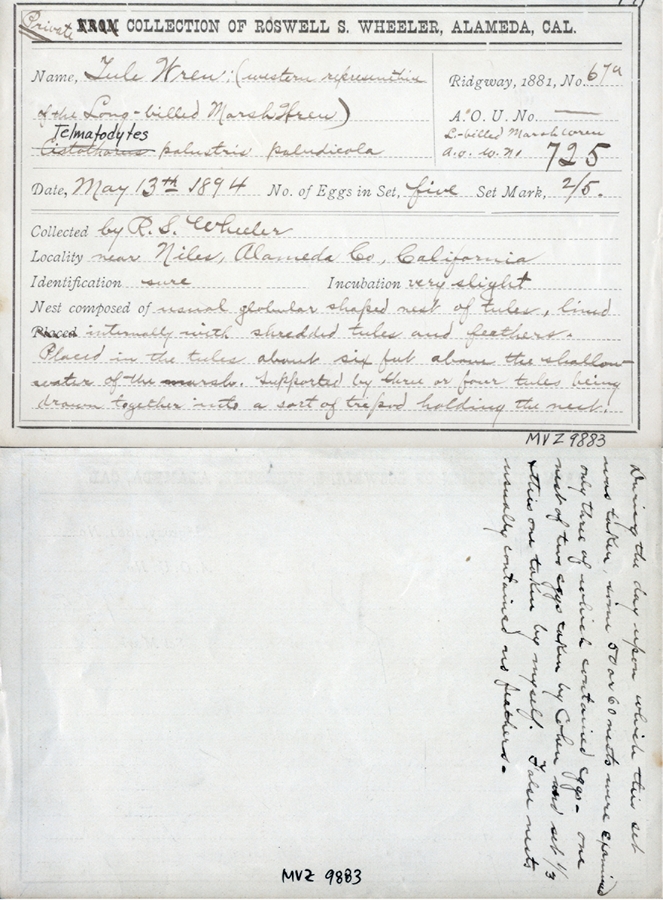 Private FROM COLLECTION OF ROSWELL S. WHEELER, ALAMEDA, CAL.
Name, Tule Wren; (western representative Ridgway, 1881, No. 67a
of the Long-billed Marsh Wren) A. O. U. No. —
Telmatodytes L-billed Marsh Wren
Cistothorus palustris paludicola A.O.U. No 725
Date, May 13th 1894 No. of Eggs in Set, five Set Mark, 2/5.
Collected by R. S. Wheeler
Locality near Niles, Alameda Co, California
Identification sure Incubation very slight
Nest composed of usual globular shaped nest of tules, lined
Placed internally with shredded tules and feathers.
Placed in the tules about six feet above the shallow
water of the marsh. Supported by three or four tules being
drawn together into a sort of trepod holding the nest.
MVZ 9883
During the day upon which this set
was taken, some 50 or 60 nests were examined
only three of which contained eggs- one
nest of two eggs taken by Cohen and set 1/3
& this one taken by myself. False nests
usually contained no feathers.
MVZ 9883